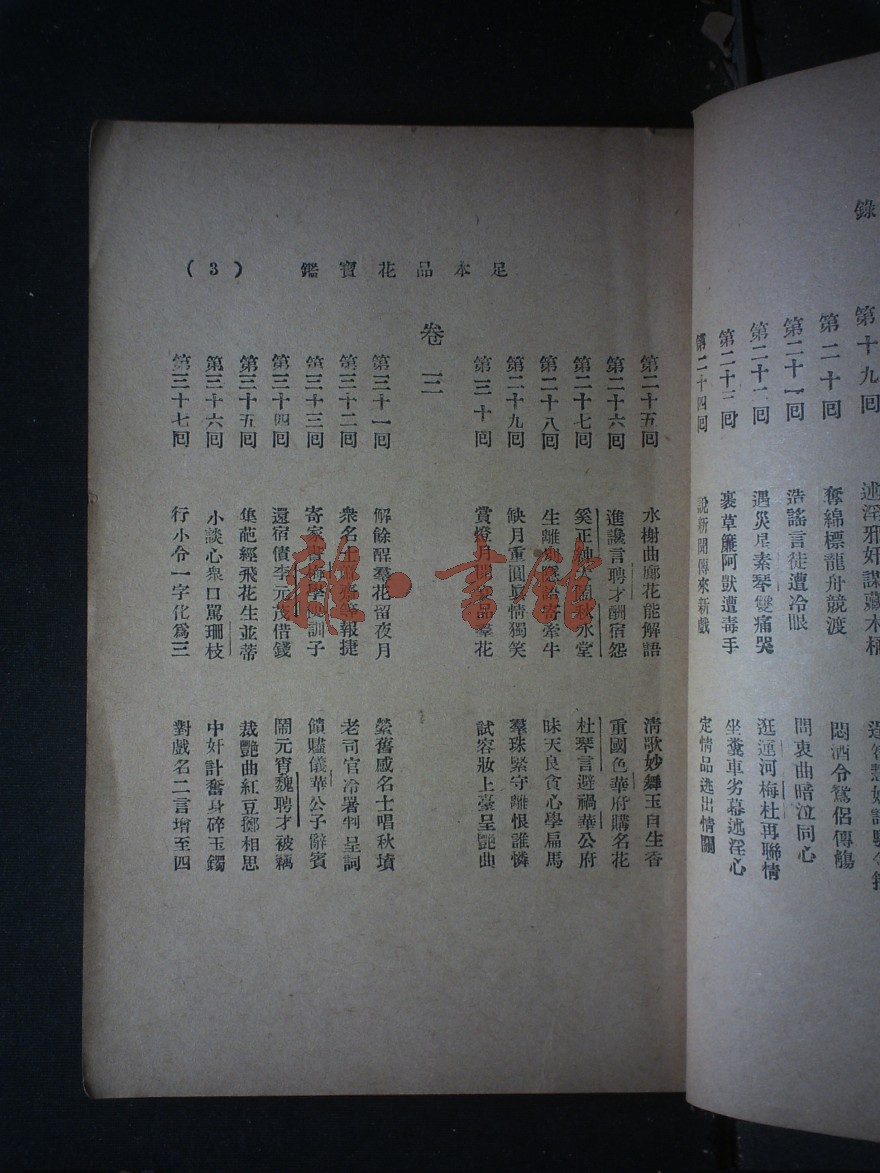 錄
第十九回 述淫邪奸謀藏木桶
第二十回 奪綿標龍舟競渡 悶酒令鴛侶傳觴
第二十一回 造謠言徒遭冷眼 問衷曲暗泣同心
第二十二回 遇災星素琴雙痛哭 逛運河梅杜再聯情
第二十三回 裹草簾阿獃遭毒手 坐糞車劣幕述淫心
第二十四回 說新聞傳來新戲 定情品逃出情關
足本品花寶鑑 (3)
第二十五回 水榭曲廊花能解語 淸歌妙舞玉自生香
第二十六回 進讒言聘才酬宿怨 重國色華府購名花
第二十七回 奚正紳大鬧秋水堂 杜琴言避禍華公府
第二十八回 生離別隱語寄牽牛 昧天良貪心學扁馬
第二十九回 缺月重圓眞情獨笑 羣珠緊守離恨誰憐
第三十回 賞燈月開宴品羣花 試容妝上臺呈艷曲
卷三
第三十一回 解餘酲羣花留夜月 縈舊感名士唱秋墳
第三十二回 衆名士 報捷 老司官冷署判呈詞
第三十三回 寄家書梅學使訓子 饋贐儀華公子辭賓
第三十四回 還宿債李元茂借錢 鬧元宵魏聘才被竊
第三十五回 集葩經飛花生並蒂 裁艷曲紅豆擲相思
第三十六回 小談心衆口罵珊枝 中奸計奮身碎玉鐲
第三十七回 行小令一字化爲三 對戲名二言增至四
書館